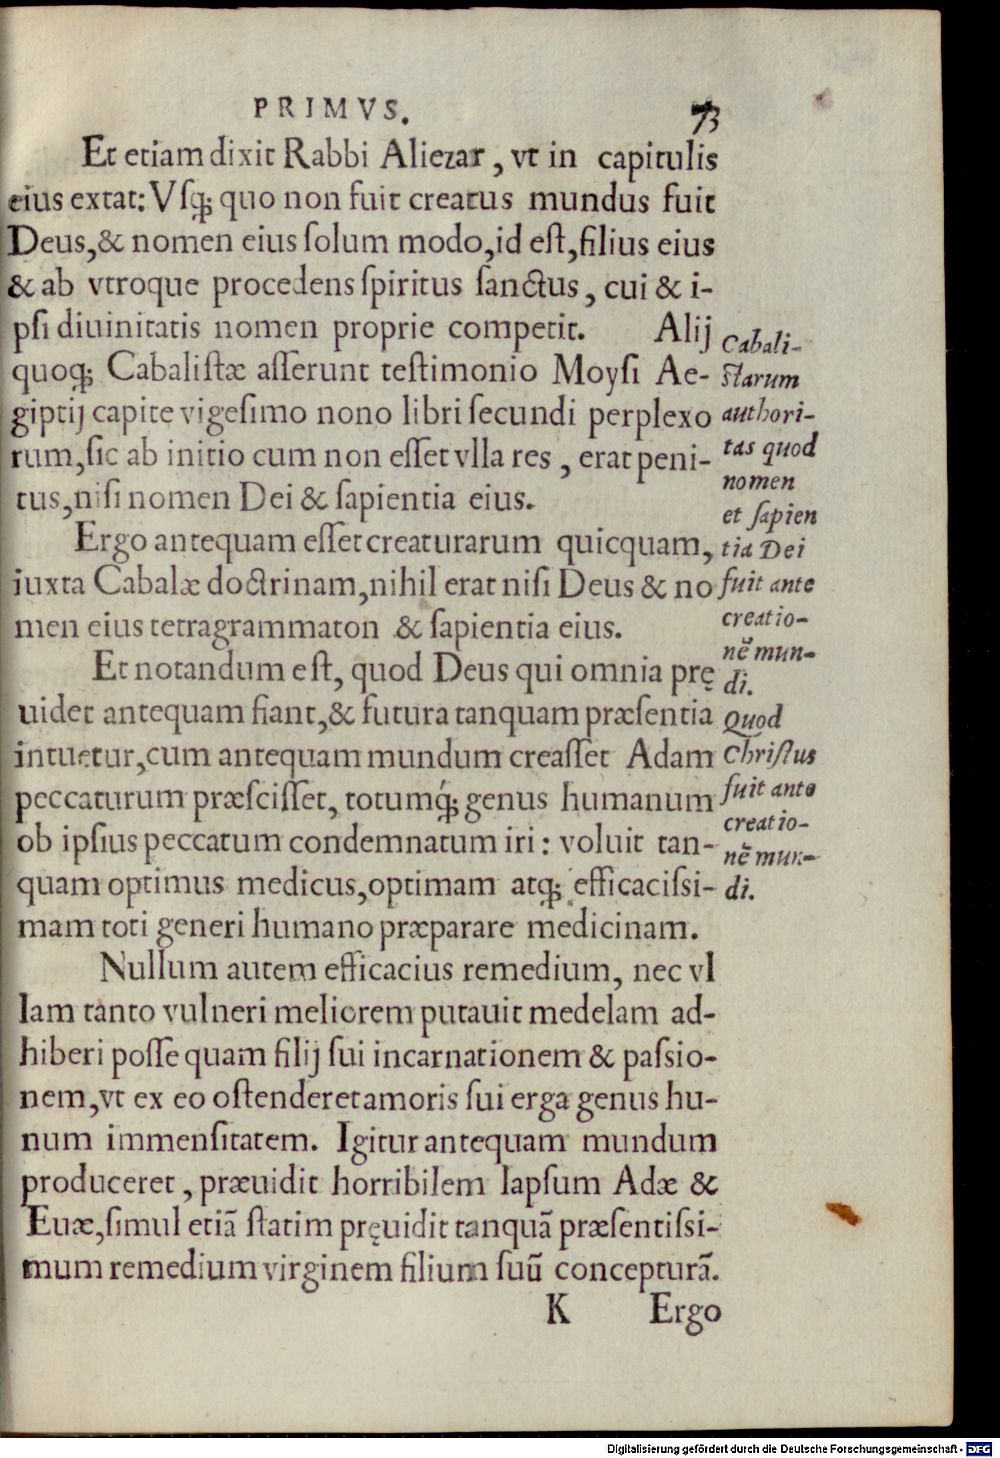 PRIMVS. 73
Et etiam dixit Rabbi Aliezar, vt in capitulis
eius extat: Vſq; quo non fuit creatus mundus fuit
Deus, & nomen eius ſolum modo, id eſt, filius eius
& ab vtroque procedens ſpiritus ſanctus, cui & i-
pſi diuinitatis nomen proprie competit. Alij
quoq; Cabaliſtæ aſſerunt teſtimonio Moyſi Ae-
giptij capite vigeſimo nono libri ſecundi perplexo
rum, ſic ab initio cum non eſſet vlla res, erat peni-
tus, niſi nomen Dei & ſapientia eius.
Ergo antequam eſſet creaturarum quicquam,
iuxta Cabalæ doctrinam, nihil erat niſi Deus & no
men eius tetragrammaton & ſapientia eius.
Et notandum eſt, quod Deus qui omnia prę
uidet antequam fiant, & futura tanquam præſentia
intuetur, cum antequam mundum creaſſet Adam
peccaturum præſciſſet, totumq́; genus humanum
ob ipſius peccatum condemnatum iri: voluit tan-
quam optimus medicus, optimam atq; efficaciſsi-
mam toti generi humano præparare medicinam.
Nullum autem efficacius remedium, nec vl
lam tanto vulneri meliorem putauit medelam ad-
hiberi poſſe quam filij ſui incarnationem & paſsio-
nem, vt ex eo oſtenderet amoris ſui erga genus hu-
num immenſitatem. Igitur antequam mundum
produceret, præuidit horribilem lapſum Adæ &
Euæ, ſimul etiã ſtatim pręuidit tanquã præſentiſsi-
mum remedium virginem filium ſuũ concepturã.
K Ergo
Cabali-
ſtarum
authori-
tas quod
nomen
et ſapien
tia Dei
fuit ante
creatio-
nẽ mun-
di.
Quod
Chriſtus
fuit ante
creatio-
nẽ mun-
di.
Digitalisierung gefördert durch die Deutsche Forschungsgemeinschaft - DFG